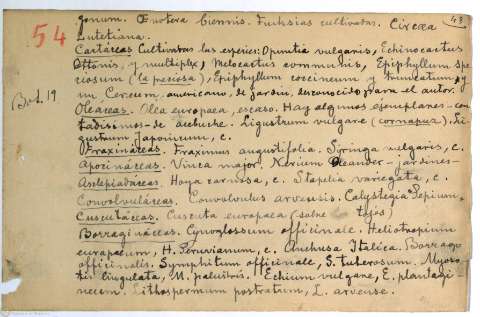 54
43
Bot. 19
gonum. Œnotera biennis. Fuchsias cultivatas. Circæa
Lutetiana.
Cactáceas. Cultivadas las especies: Opuntia vulgaris, Echinocactus
Ottonis, y multiplex, Melocactus communis, Epiphyllum spe
ciosum (la preciosa), Epiphyllum coccineum y truncatum, y
un Cereum americano, de jardin, desconocido para el autor.
Oleáceas. Olea europaea, escaso. Hay algunos ejemplares - con
tadisimos - de acebuche. Ligustrum vulgare (cornapuz). Li
gustrum Japonicum, c.
Fraxináceas. Fraximus augustifolia. Syringa vulgaris, c.
Apocináceas. Vinca major. Nerium Oleander - jardines -
Asclepiadáceas. Hoya carnosa, c. Stapelia variegata, c.
Convolvuláceas. Convolvulus arvensis. Calystegia Sepium.
Cuscutáceas. Cuscuta europaea (sobre tojos)
Borragináceas. Cynoglossum officinale. Heliotropium
europaeum, H. Peruvianum, c. Anchusa Italica. Borrago
officinalis. Symphitum officinale, S. tuberosum. Myoso
tis lingulata, M. palustris. Echium vulgare, E. plantagi
neum. Lithospermum postratum, L. arvense.